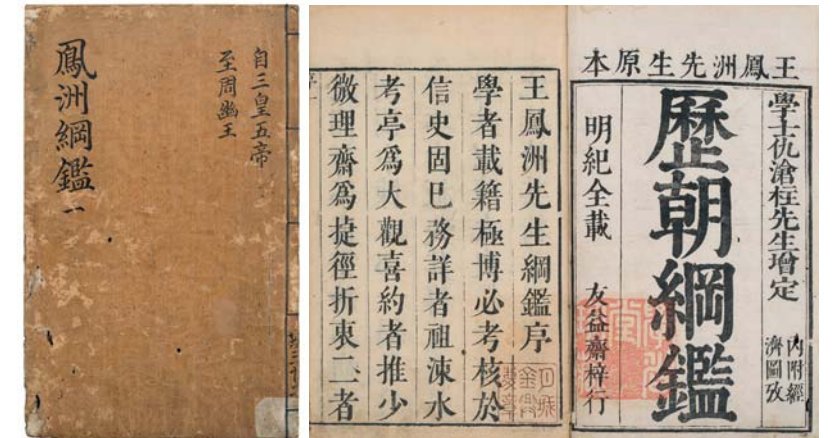 鳳洲綱鑑一
自三皇五帝
至周幽王
王鳳洲先生原本
學士仇滄柱先生增定
內附經
濟圖攷
歷朝綱鑑
明紀全載
友益齋梓行
王鳳洲先生綱鑑序
學者載籍極博必考核於
信史固巳務詳者祖涑水
考亭爲大觀喜約者推少
微理齋爲捷徑折衷二者